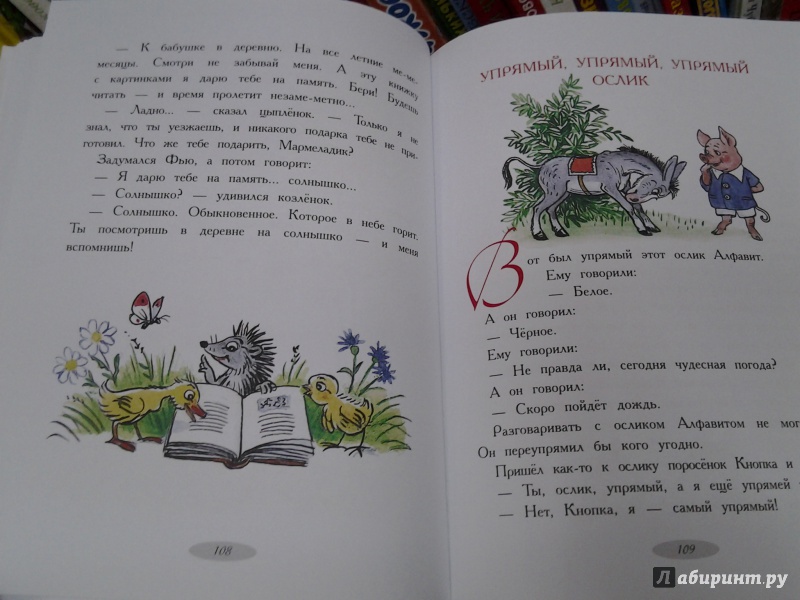 — К бабушке в деревню. На все летние ме-ме-
месяцы. Смотри не забывай меня. А эту книжку
с картинками я дарю тебе на память. Бери! Будешь
читать — и время пролетит незаме-метно...
— Ладно... — сказал цыплёнок. — Только я не
знал, что ты уезжаешь, и никакого подарка тебе не при-
готовил. Что же тебе подарить, Мармеладик?
Задумался Фью, а потом говорит:
— Я дарю тебе на память... солнышко...
— Солнышко? — удивился козлёнок.
— Солнышко. Обыкновенное. Которое в небе горит.
Ты посмотришь в деревне на солнышко — и меня
вспомнишь!
108
УПРЯМЫЙ, УПРЯМЫЙ, УПРЯМЫЙ
ОСЛИК
Вот был упрямый этот ослик Алфавит.
Ему говорили:
— Белое.
А он говорил:
— Чёрное.
Ему говорили:
— Не правда ли, сегодня чудесная погода?
А он говорил:
— Скоро пойдёт дождь.
Разговаривать с осликом Алфавитом не мог
Он переупрямил бы кого угодно.
Пришёл как-то к ослику поросёнок Кнопка и
— Ты, ослик, упрямый, а я ещё упрямей
— Нет, Кнопка, я — самый упрямый!
109
Лабиринт.ру